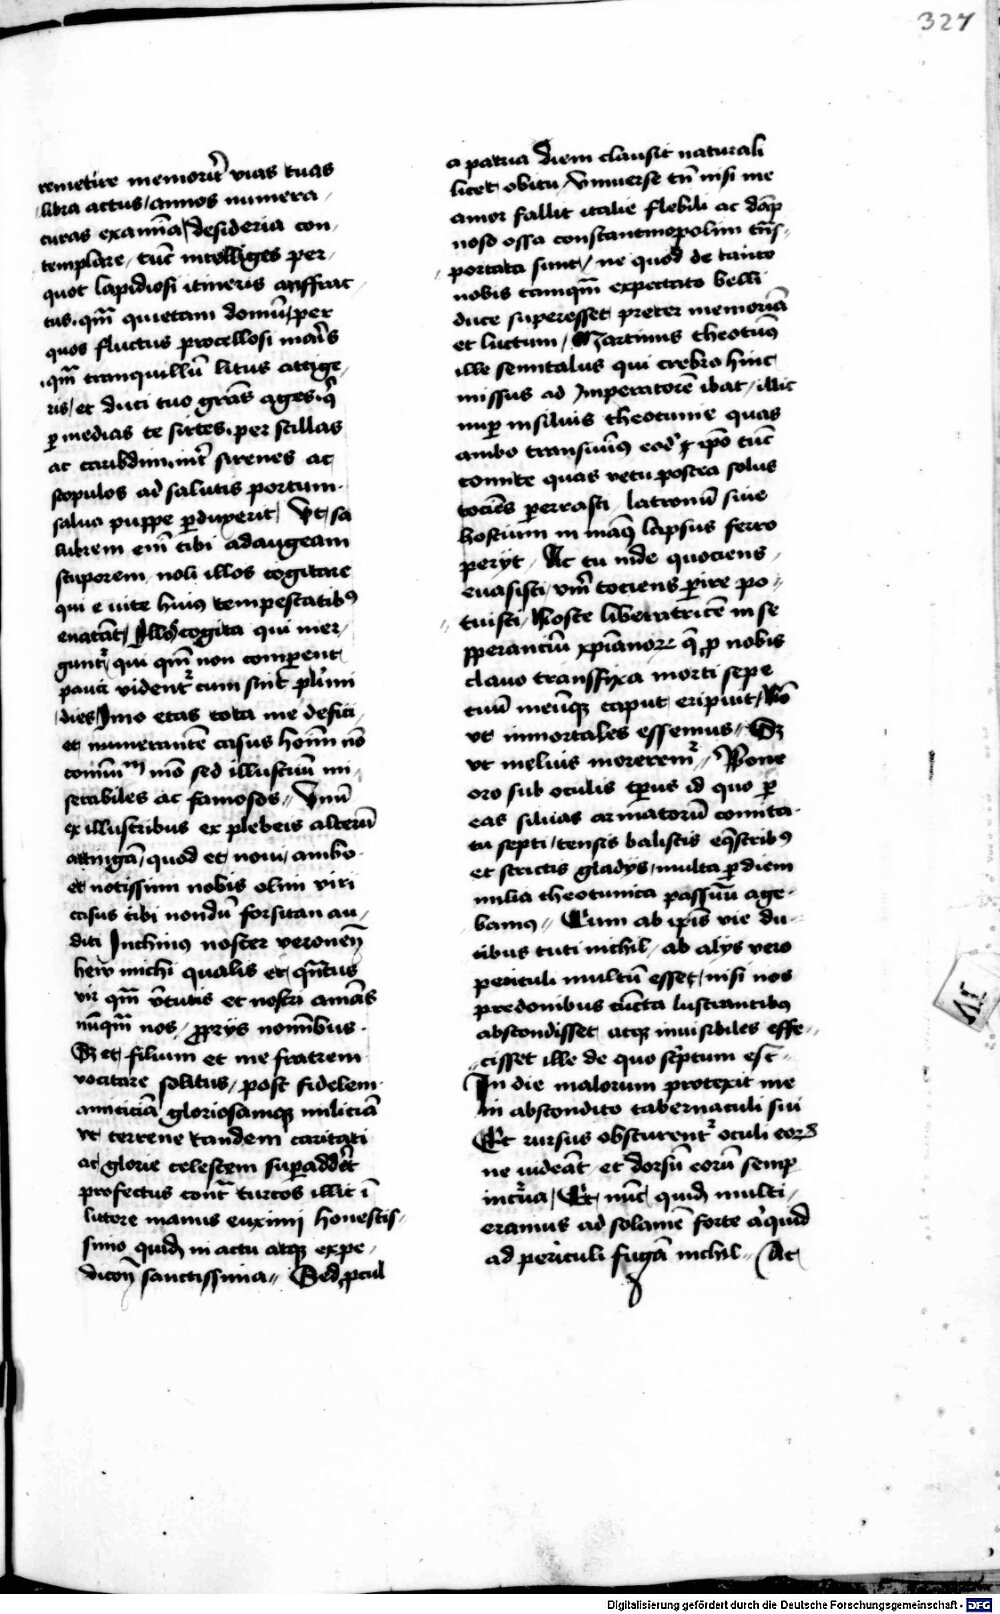 327
remetire memorit̃ vias tuas
libra actus / annos numera /
curas examīa / desideria con /
templare / tūc intelliges per /
quot lapidiosi itineris anffrac /
tus qm̃ quietam domũ / per
quos fluctus procellosi mar̃s
qm̃ tranquillũ litus attige /
ris / et duci tuo gr̃as ages q̃
ꝑ medias te sirtes per scillas
ac caribdim int̃ sirenes ac
scopulos ad salutis portum
salua puppe ꝑduxerit Vt sa
lubrem em̃ tibi adaugeam
stuporem / noli illos cogitare
qui e uite huiꝰ tempestatibꝰ
enatāt / Illos cogita qui mer /
gunt᷑ / qui qm̃ non comperent
pauci vident᷑ cum sint plĩmi
dies Imo etas tota me defici /
et numerantē casus hoĩm nō
comũm mō sed illustriũ mi /
serabiles ac famosos // Vnũ
ex illustribus ex plebeis alterũ
attingā / quod et noui / ambo
et notissimi nobis olim viri
casus tibi nondũ forsitan au /
diti Inthinus noster veronen̄
hew michi qualis et q̃ntus
vir qm̃ v̄tutis et nostri amās
nũqm̃ nos / ꝓprijs nom̄ibus
Sꝫ et filium et me fratrem
vocitare solitus / post fidelem
amiciciā gloriosamqꝫ miliciā
vt terrene tandem caritati
ac glorie celestem suꝑadd̄et
profectus cont̃ turcos illic ī
littore manus euximi honestis /
simo quidē in actu atqꝫ expe /
dicōn̄ sanctissima // Sed ꝓcul
a patria diem clausit naturali
licet obitu / Vniuerse tn̄ nisi me
amor fallit italie flebili ac dāp
noso ossa constantinopolim tn̄s /
portata sunt / ne quod de tanto
nobis tamqm̃ expectato belli
duce superesset preter memoriā
et luctum / Martinus theotũꝰ
ille senutalus qui crebro hinc
missus ad Imperatorē ibat / illic
nuꝑ in siluis theotunie quas
ambo transiuĩꝰ eod̃ ꝫ ip̄o tūc
comite quas vetu postea solus
tociēs pererrasti latronũ siue
hostium in man̄ꝰ lapsus ferro
perijt / Ac tu inde quociens
euasisti / vn̄ tociens ꝑire po /
tuisti / Noste liberatricē in se
sperancium xp̄ianoꝝ q̄ ꝓ nobis
clauo transfixa morti sepe
tuũ meũqꝫ caput eripuit / Nō
vt inmortales essemus // Sꝫ
vt melius morerem᷑ // Pone
oro sub oculis tꝑus id quo ꝑ
eas siluas armatorũ comita
tu septi / tensis balistis eq̄stribꝰ
et strictis gladijs / multa ꝑ diem
milia theotunica passuũ age
bamus // Cum ab ip̄is vie du
cibus tuti nichil / ab alijs vero
periculi multũ esset / nisi nos
predonibus cūcta lustrantibus
abscondisset atqꝫ inuisibiles effe
cisset ille de quo sc̃ptum est
In die malorum protexit me
in abscondito tabernaculi sui
Et rursus obscurent᷑ oculi eoꝝ
ne uideāt / et dorsũ eorũ semꝑ
incũa / Et nūc quidē multi /
eramus ad solamē forte aliquid
ad periculi fugā nichil // Ac
Digitalisierung gefördert durch die Deutsche Forschungsgemeinschaft - DFG